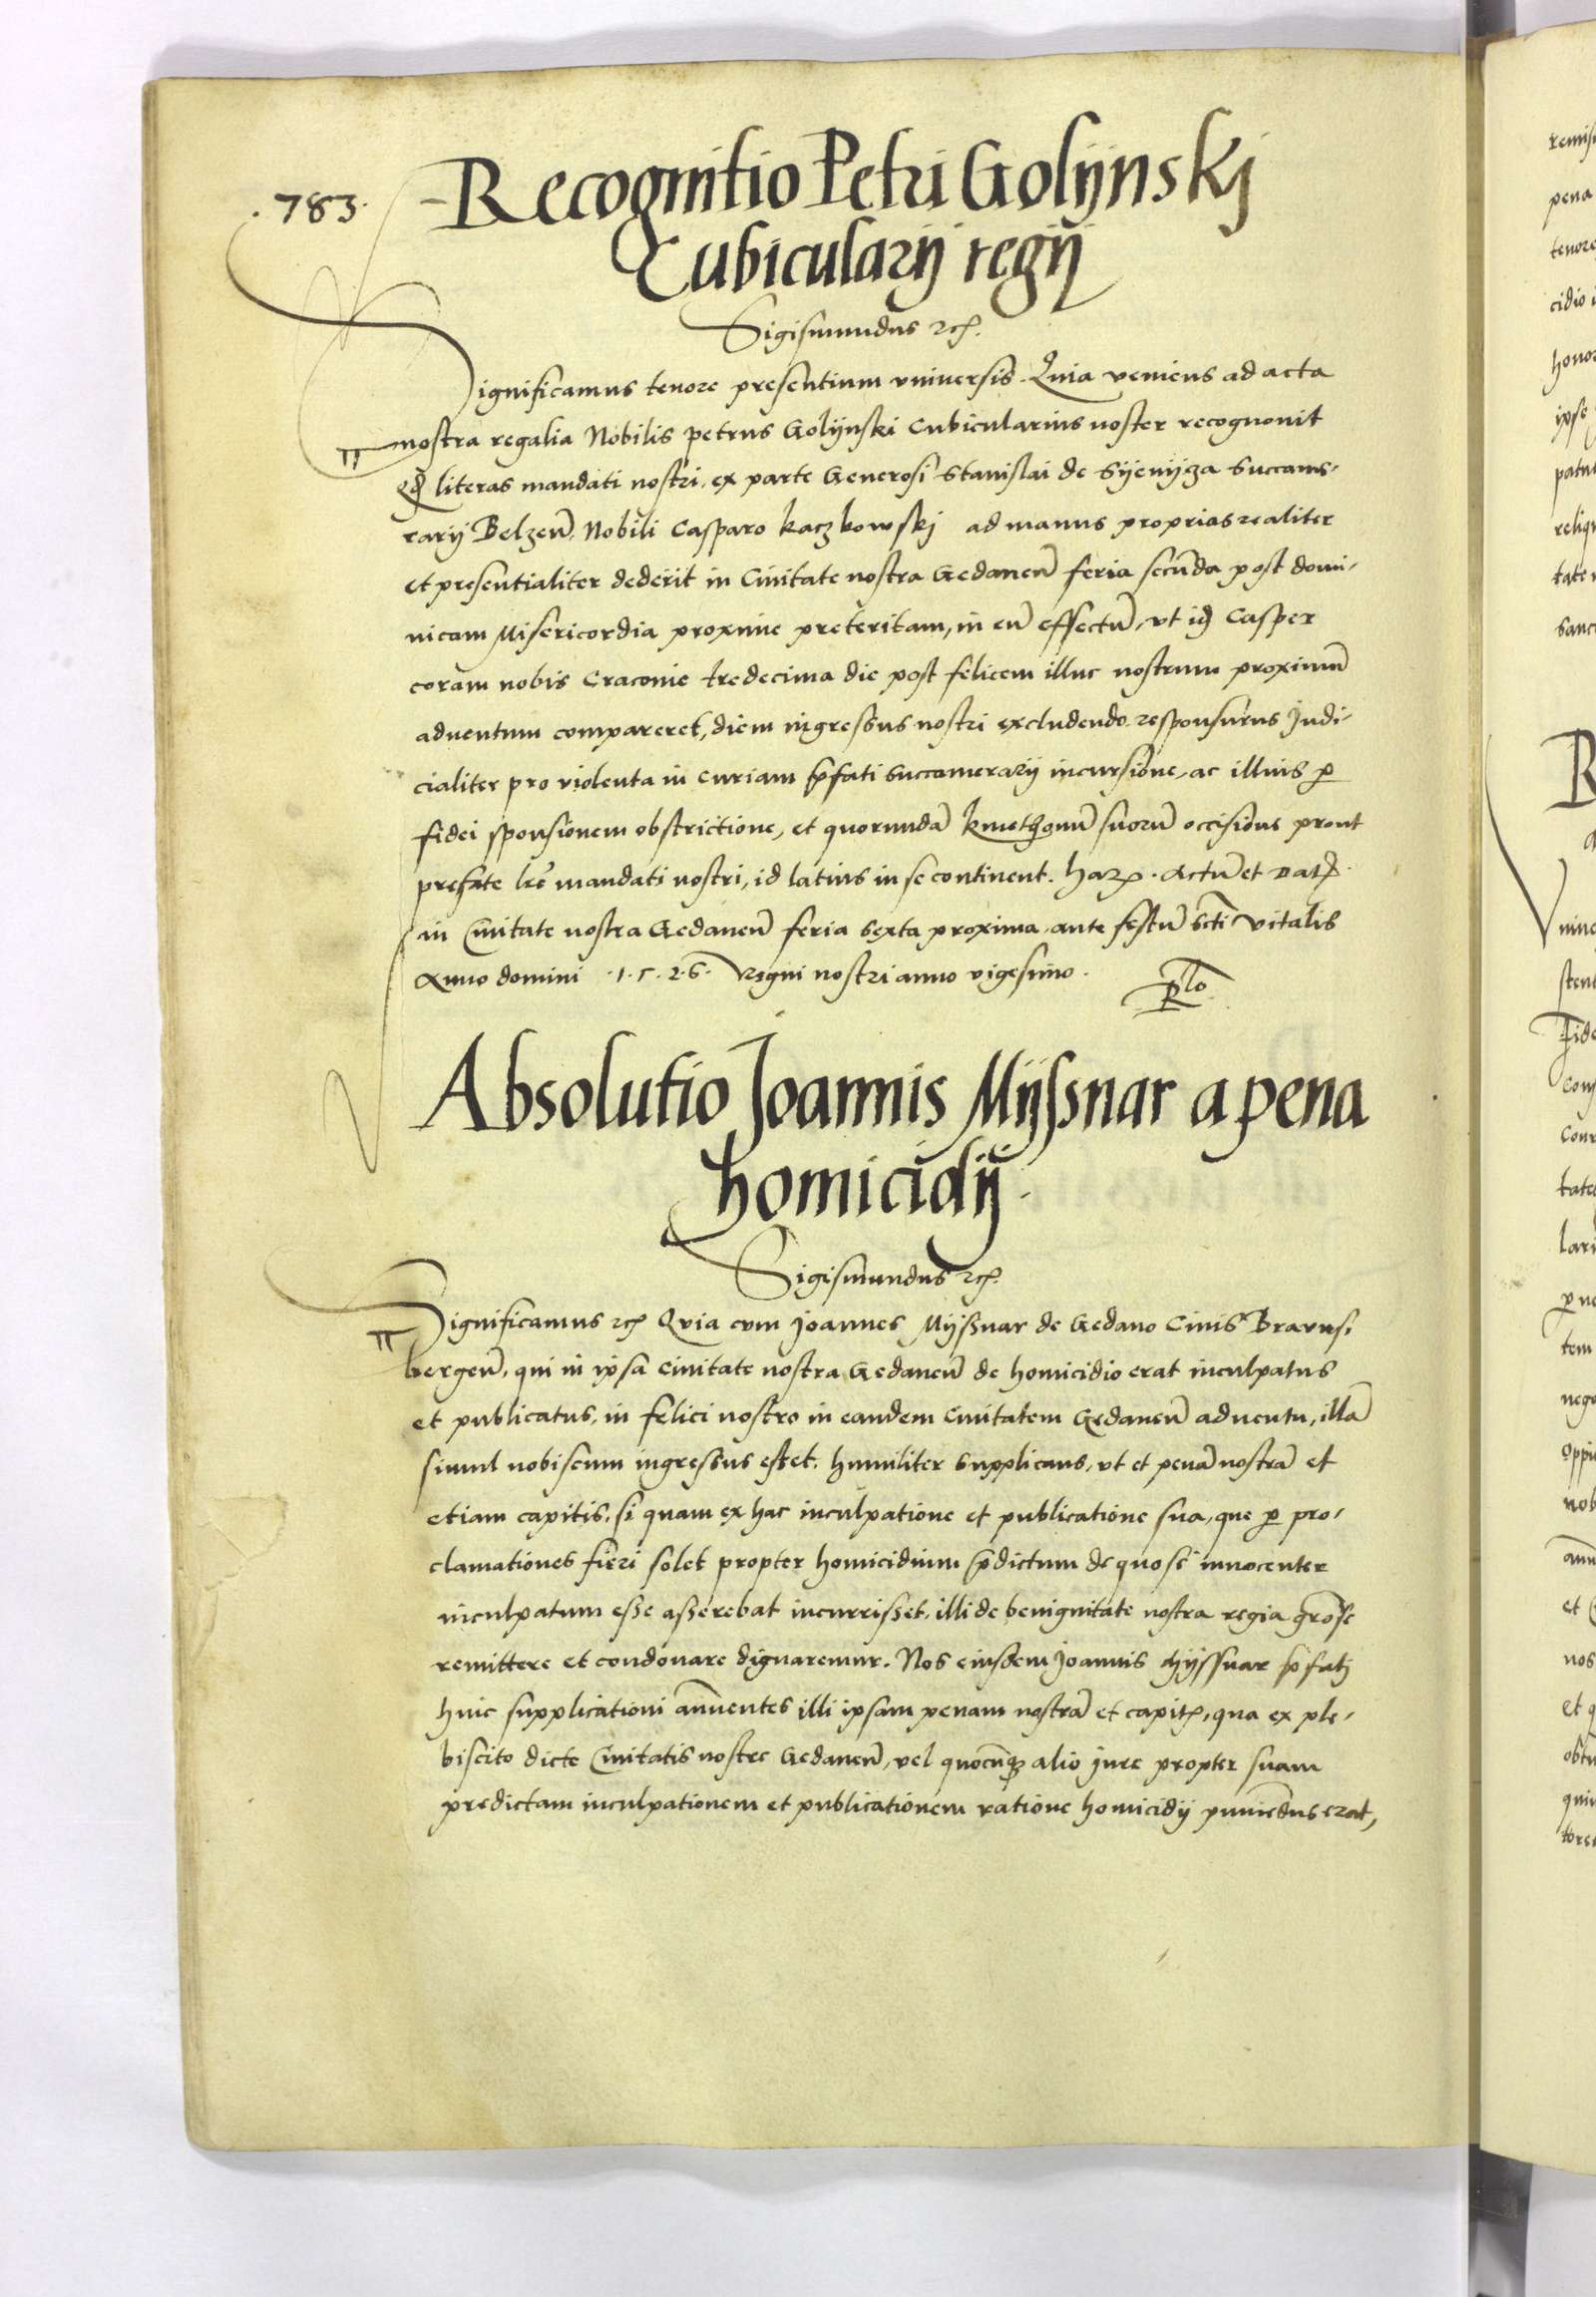 .783.
Recognitio Petri Golÿnskj
Cubicularÿ regÿ
Sigismundus etc.
Significamus tenore presentium vniversis. Quia veniens ad acta
nostra regalia Nobilis petrus Golÿnski Cubicularius noster recognouit
literas mandati nostri, ex parte Generosi Stanislai de Sÿenÿza Succame-
rarÿ Belzeñ. Nobili Casparo kaczkowskj ad manus proprias realiter
et presentialiter dederit in Ciuitate nostra Gedaneñ feria secunda post domi-
nicam Misericordia proxime preteritam, in eũ effectũ, vt id̃ Casper
coram nobis Cracouie tredecima die post felicem illuc nostrum proximũ
aduentum compareret, diem ingressus nostri excludendo responsurus Judi-
cialiter pro violenta in curiam p̃fati Succamerarÿ incursione, ac illius ꝑ
fidei sponsionem obstrictione, et quorundã kmethonũ suorũ occisione prout
prefate lr̃e mandati nostri, id latius in se continent. harꝝ. Actũ et Dat̃.
in Ciuitate nostra Gedaneñ feria sexta proxima ante festũ sc̃ti Vitalis
Anno domini .1.5.2.6. Regni nostri anno vigesimo.
Absolutio Joannis Mÿssnar a pena
homicidÿ.
Sigismundus etc.
Significamus etc. Quia cum Joannes Mÿssnar de Gedano Ciuis Brauns-
bergeñ, qui in ipsa Ciuitate nostra Gedaneñ de homicidio erat inculpatus
et publicatus, in felici nostro in eandem Ciuitatem Gedaneñ aduentu, illã
simul nobiscum ingressus esset. humiliter supplicans, vt et penã nostrã et
etiam capitis, si quam ex hac inculpatione et publicatione sua, que ꝑ pro-
clamationes fieri solet propter homicidium p̃dictum de quo se innocenter
inculpatum esse asserebat incurrisset, illi de benignitate nostra regia grõse
remittere et condonare dignaremur. Nos eiusdem Joannis Mÿssnar p̃fatj
huic supplicationi añuentes illi ipsam penam nostrã et capitꝭ, qua ex ple-
biscito dicte Ciuitatis nostre Gedaneñ, vel quocũqꝫ alio jure propter suam
predictam inculpationem et publicationem ratione homicidÿ puniẽdus erat,